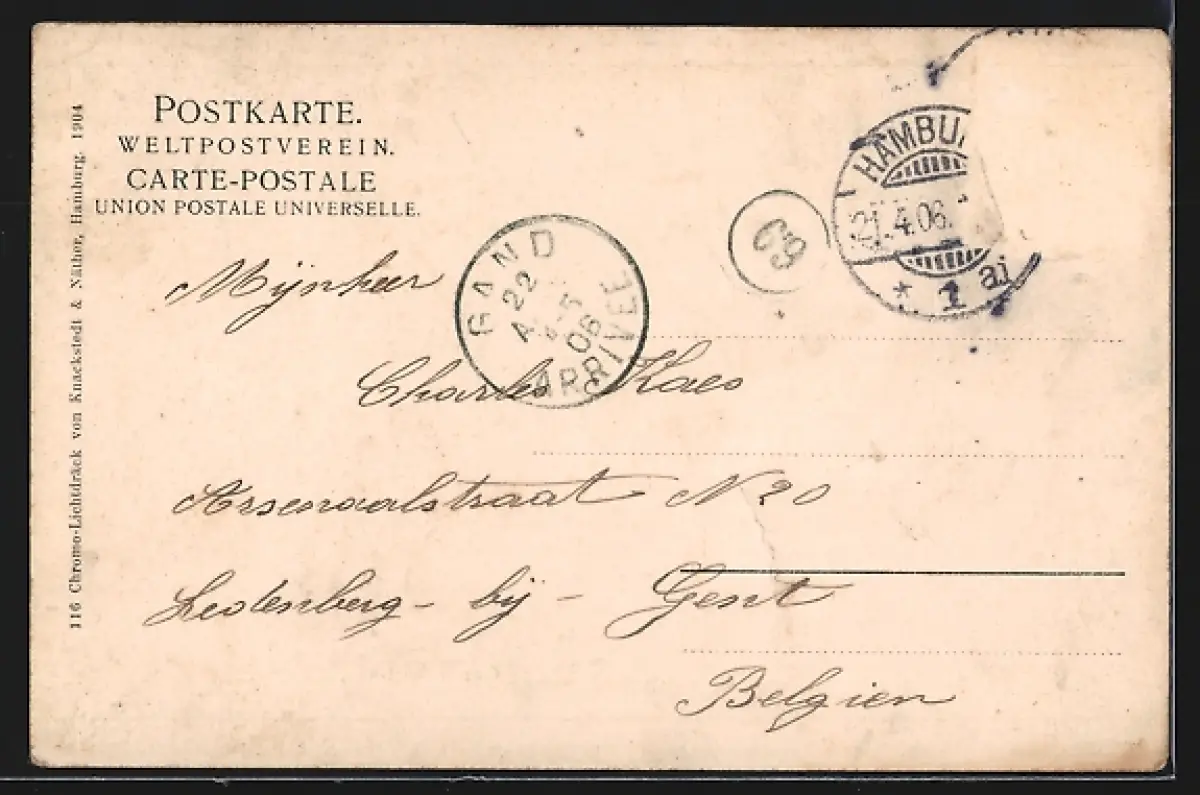 POSTKARTE.
WELTPOSTVEREIN.
CARTE-POSTALE
UNION POSTALE UNIVERSELLE.
116 Chromo-Lichtdruck von Knackstedt & Näther, Hamburg. 1904
HAMBU
21.4.06.
* 1 ai
69
GAND
22
06
ARRIVEE
Mijnheer
Charles Kaes
Arsenaalstraat N 20
Ledenberg - bij - Gent
Belgien